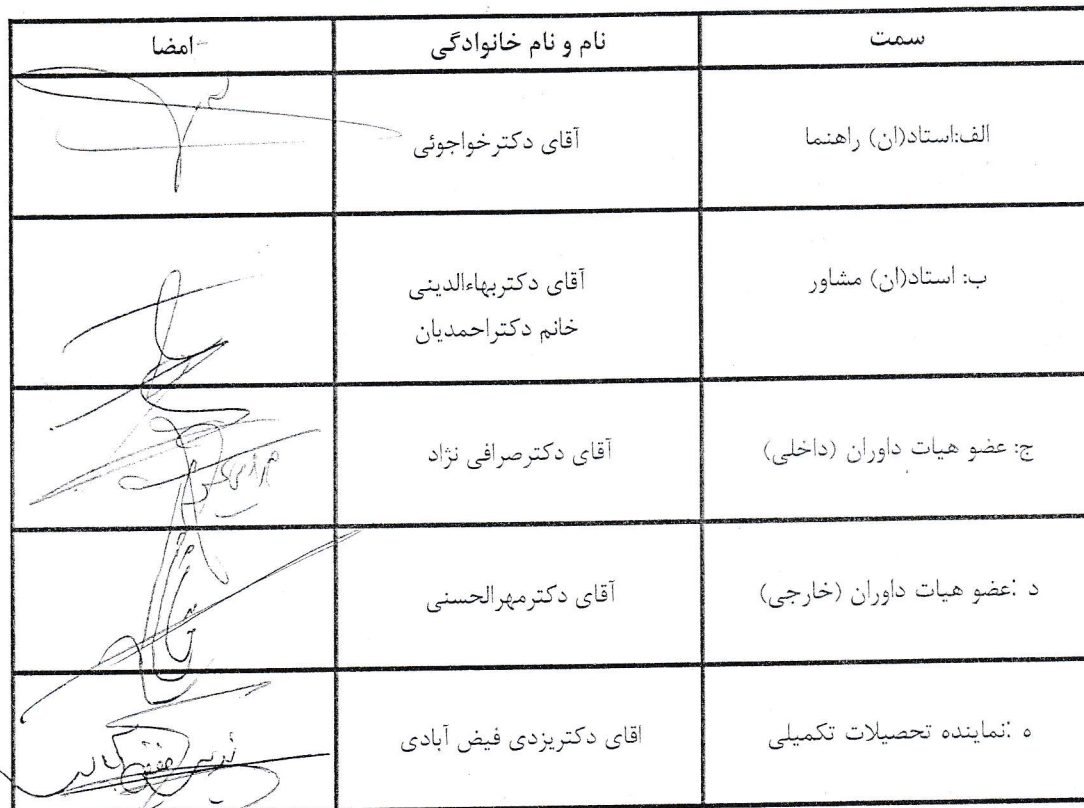 سمت
نام و نام خانوادگی
امضا
الف:استاد(ان) راهنما
آقای دکترخواجوئی
ب: استاد(ان) مشاور
آقای دکتربهاءالدینی
خانم دکتراحمدیان
ج: عضو هیات داوران (داخلی)
آقای دکترصرافی نژاد
د :عضو هیات داوران (خارجی)
آقای دکترمهرالحسنی
ه :نماینده تحصیلات تکمیلی
اقای دکتریزدی فیض آبادی